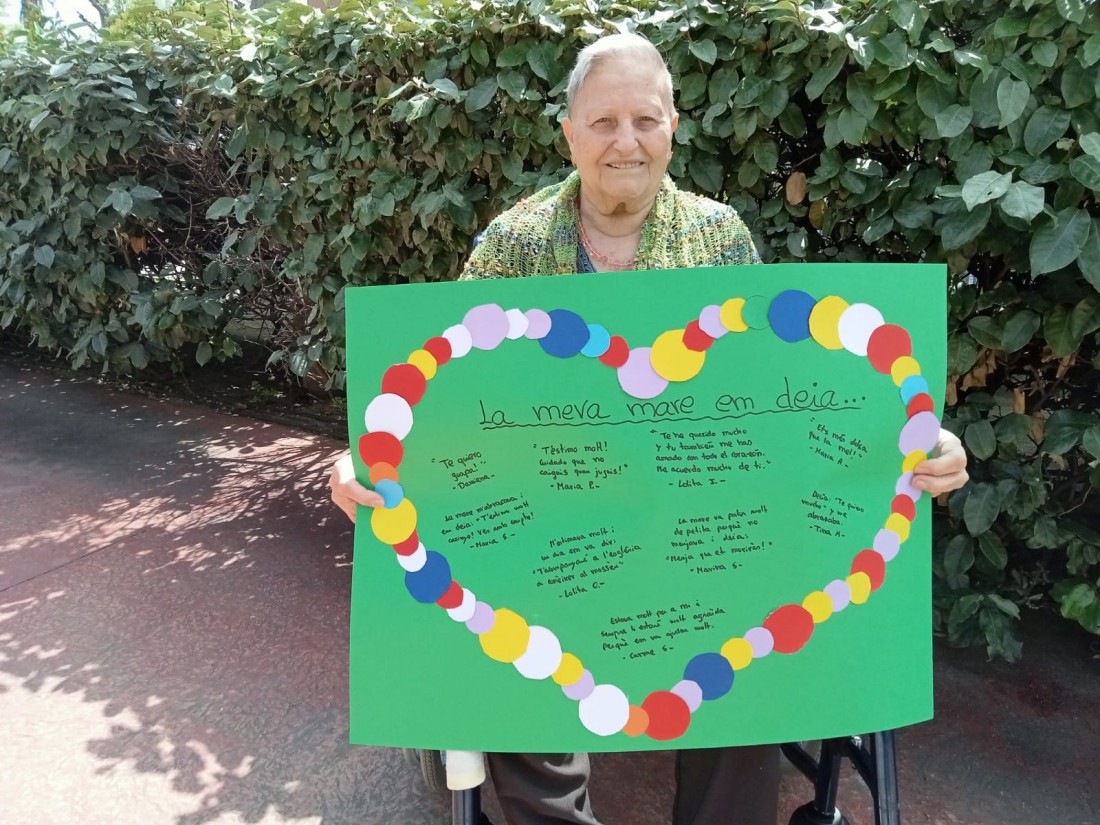 La meva mare em deia...
"Te quiero
guapa!"
- Damiana -
"T'estimo molt!
Cuidado que no
caiguis quan juguis!"
- Maria P. -
"Te he querido mucho
y tu también me has
amado con todo el corazón.
Me acuerdo mucho de ti."
- Lolita I. -
"Ets més dolça
que la mel!"
- Maria A. -
La mare m'abraçava i
em deia: "T'estimo molt
carinyo! Ves amb compte!
- Maria S -
M'estimava molt i
un dia em va dir:
"T'acompanyaré a l'església
a conèixer al mossèn"
- Lolita C. -
La mare va patir molt
de petita perquè no
menjava i deia:
"Menja que et moriràs!"
- Marina S -
Deia: "Te quiero
mucho" y me
abrazaba.
- Tina M -
Estava molt per a mi i
sempre li estaré molt agraïda
perquè em va ajudar molt.
- Carme S -